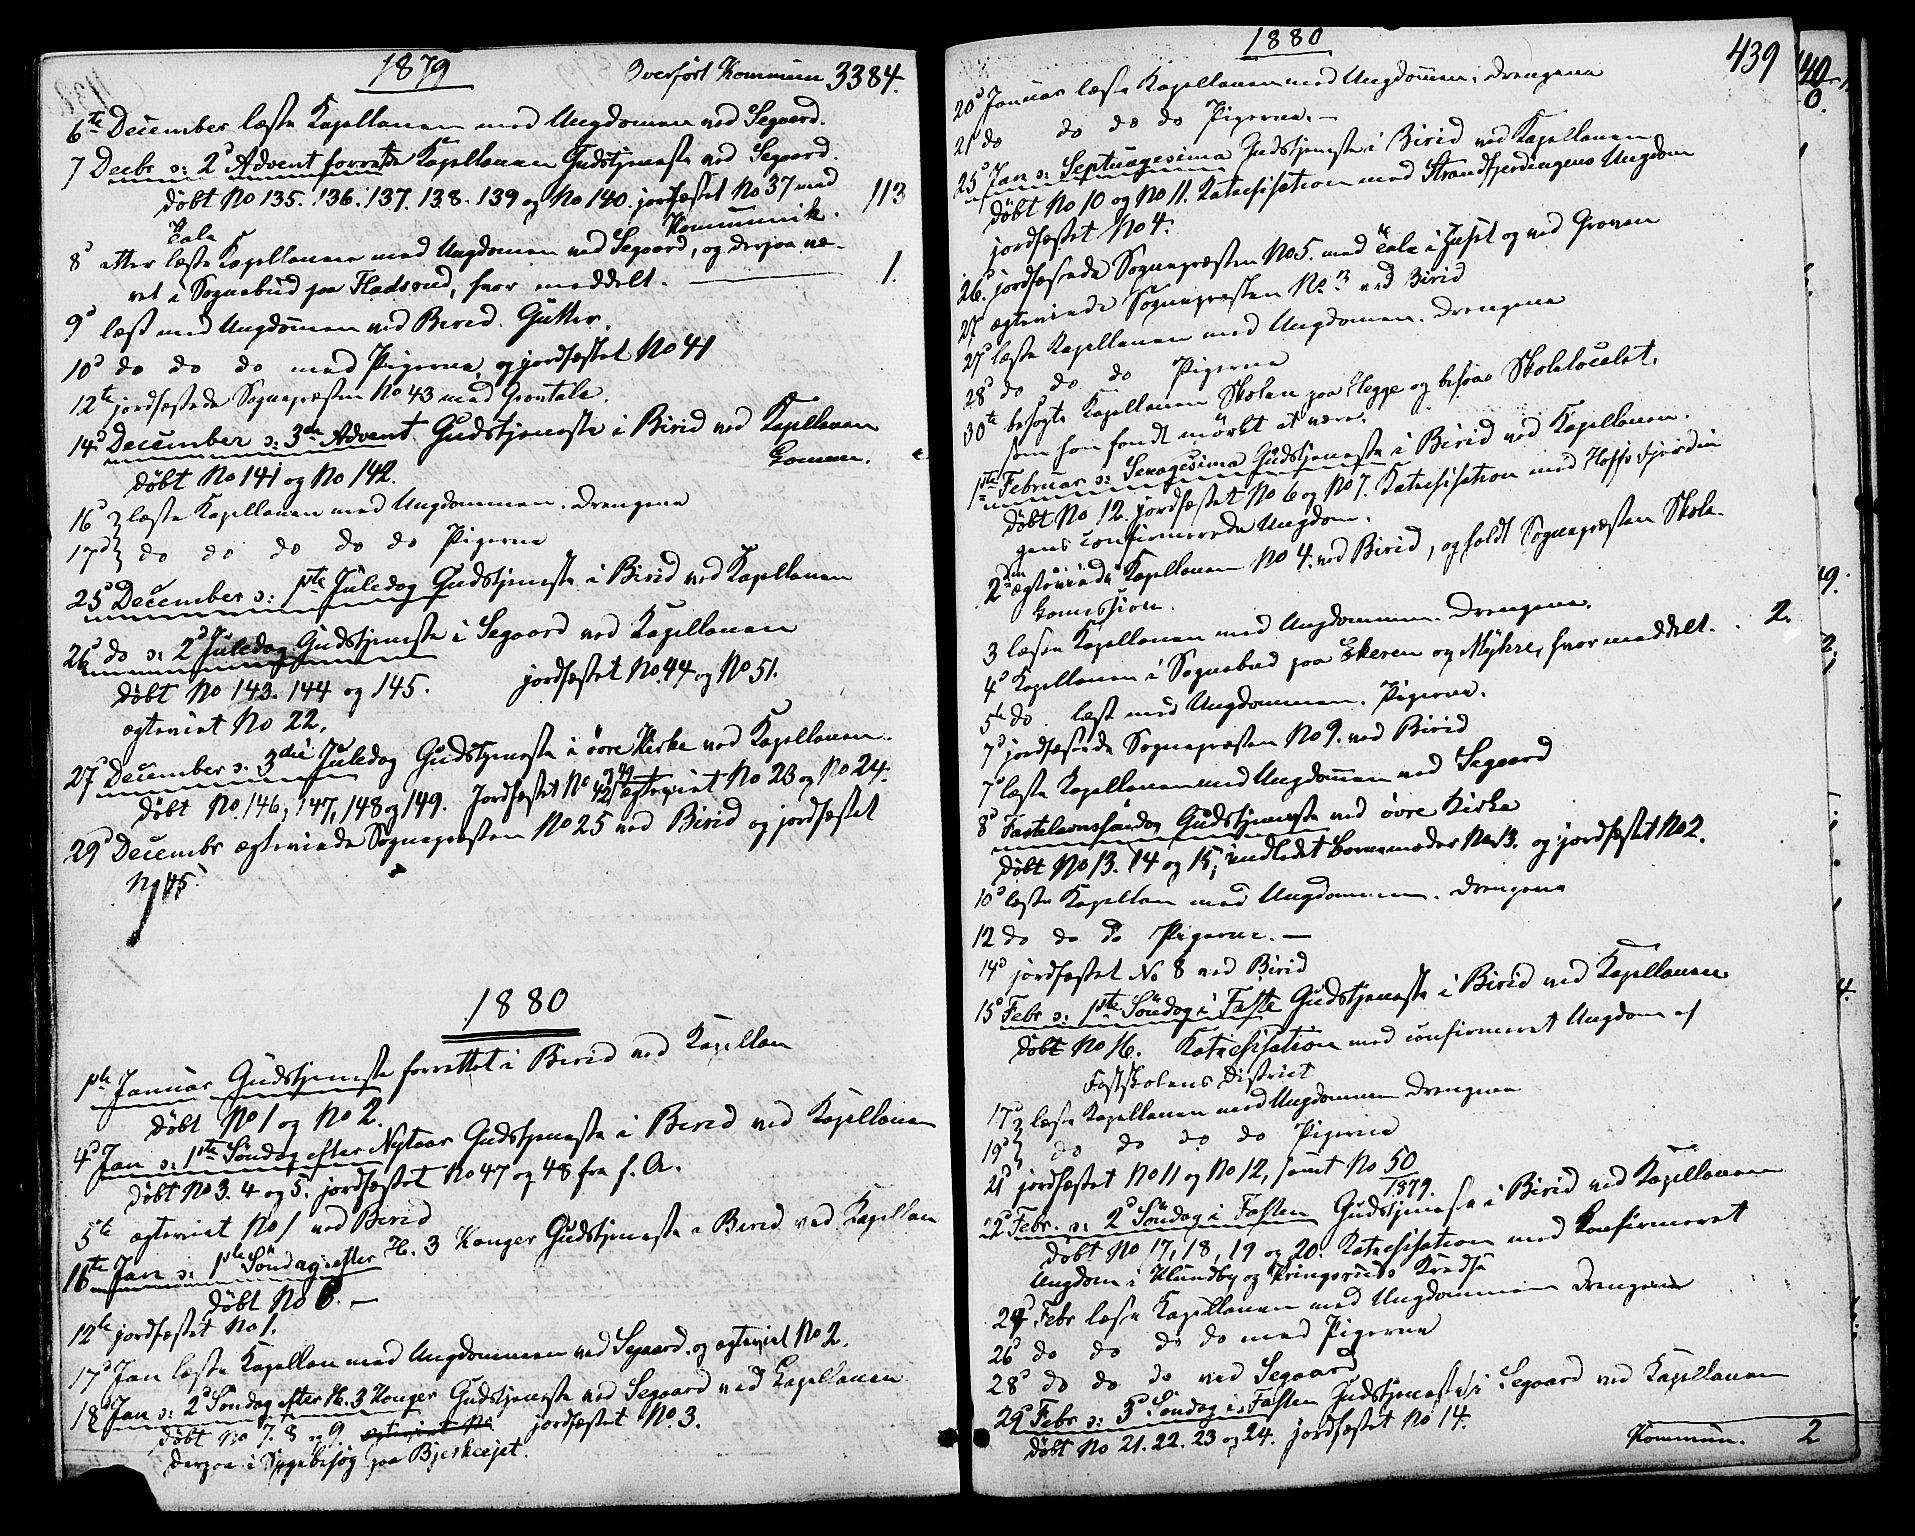 1879
Overført Kommun 3384.
6te December læste Kapellanen med Ungdommen ved Segaard.
7 Decbr ɔ: 2d Advent forrettede Kapellanen Gudstjeneste ved Segaard.
døbt No 135. 136. 137. 138. 139 og No 140. jordfæstet No 37 med
Tale Kommunik. 113
8d efter læste Kapellanen med Ungdommen ved Segaard, og derpaa væ-
ret i Sognebud paa Fladsrud, hvor meddelt. 1.
9d læst med Ungdommen ved Birid. Gutter.
10d do do do med Pigerne, og jordfæstet No 41
12te jordfæstede Sognepræsten No 43 med Gravtale.
14d December ɔ: 3die Advent Gudstjeneste i Birid ved Kapellanen
døbt No 141 og No 142.
16d læste Kapellanen med Ungdommen. Drengene
17d do do do do do Pigerne
25d December ɔ: 1ste Juledag Gudstjeneste i Birid ved Kapellanen
26d do ɔ: 2d Juledag Gudstjeneste i Segaard ved Kapellanen
døbt No 143. 144 og 145. jordfæstet No. 44 og No 51.
ægteviet No 22.
27d December ɔ: 3die Juledag Gudstjeneste i övre Kirke ved Kapellanen.
døbt No. 146, 147, 148 og 149. Jordfæstet No 42 og 49 ægteviet No 23 og No 24.
29d Decembr ægteviede Sognepræsten No 25 ved Birid og jordfæstet
No 45.
1880
1ste Januar Gudstjeneste forrettet i Birid ved Kapellan
døbt No 1 og No 2.
4d Jan ɔ: 1ste Søndag efter Nytaar Gudstjeneste i Birid ved Kapellanen
døbt No 3. 4 og 5. jordfæstet No 47 og 48 fra f. A.
5te ægteviet No 1 ved Birid
Jan ɔ: 1ste Søndag efter H. 3 Konger Gudstjeneste i Birid ved Kapellan
døbt No 6. —
12te jordfæstet No 1.
17d Jan læste Kapellan med Ungdommen ved Segaard. og ægteviet No 2.
18d Jan ɔ: 2d Søndag efter H. 3 Konger Gudstjeneste ved Segaard ved Kapellanen
døbt No 7. 8 og 9 ægteviet No jordfæstet No. 3.
derpaa i Sygebesøg paa Bjerkeejet.
1880
439
20d Januar læste Kapellanen med Ungdommen. Drengene
21 do do do do Pigerne. —
25d Jan ɔ: Septuagesima Gudstjeneste i Birid ved Kapellanen
døbt No 10 og No 11. Katechisation med Strandfjerdingens Ungdom
jordfæstet No 4.
26. jordfæstede Sognepræsten No 5. med Tale i Huset og ved Graven
27 ægteviede Sognepræsten No 3 ved Birid
27d læste Kapellanen med Ungdommen. Drengene
28d do do do Pigerne
30te besøgte Kapellanen Skolen paa Hegge og besaae Skolelocalet,
som han fandt mörkt at være.
1ste Februar ɔ: Sexagesima Gudstjeneste i Birid ved Kapellanen.
døbt No 12. jordfæstet No 6 og No 7. Katechisation med Hoffsfjerdin
gens confirmerede Ungdom.
2den ægteviede Kapellanen No 4. ved Birid, og holdt Sognepræsten Skole-
Comission.
3 læste Kapellanen med Ungdommen. Drengene.
4d Kapellanen i Sognebud paa Ekeren og Myhre, hvor meddelt. . 2.
5te do læst med Ungdommen. Pigerne.
7d jordfæstede Sognepræsten No 9. ved Birid
7d læste Kapellanen med Ungdommen ved Segaard
8d Fastelavnssöndag Gudstjeneste ved övre Kirke
døbt No 13. 14 og 15, indledet Barnemoder No 13. og jordfæstet No 2.
10d læste Kapellan med Ungdommen. Drengene
12 do do do Pigerne. —
14d jordfæstet No 8 ved Birid
15d Febr ɔ: 1ste Söndag i Faste Gudstjeneste i Birid ved Kapellanen
døbt No 16. Katechisation med confirmeret Ungdom af
Fastskolens District
17d læste Kapellanen med Ungdommen Drengene
19d do do do do Pigerne
21d jordfæstet No 11 og No 12, samt No 50
1879.
22d Febr. ɔ: 2d Söndag i Fasten Gudstjeneste i Birid ved Kapellanen
døbt No 17, 18, 19 og 20. Katechisation med Konfirmeret
Ungdom i Klundby og Kringsruds Kredse
24 Febr læste Kapellanen med Ungdommen Drengene
26d do do do do med Pigerne
28d do do do ved Segaard
29d Febr ɔ: 3d Söndag i Fasten Gudstjeneste i Segaard ved Kapellanen
døbt No 21. 22. 23 og 24. jordfæstet No 14.
Kommun. 2